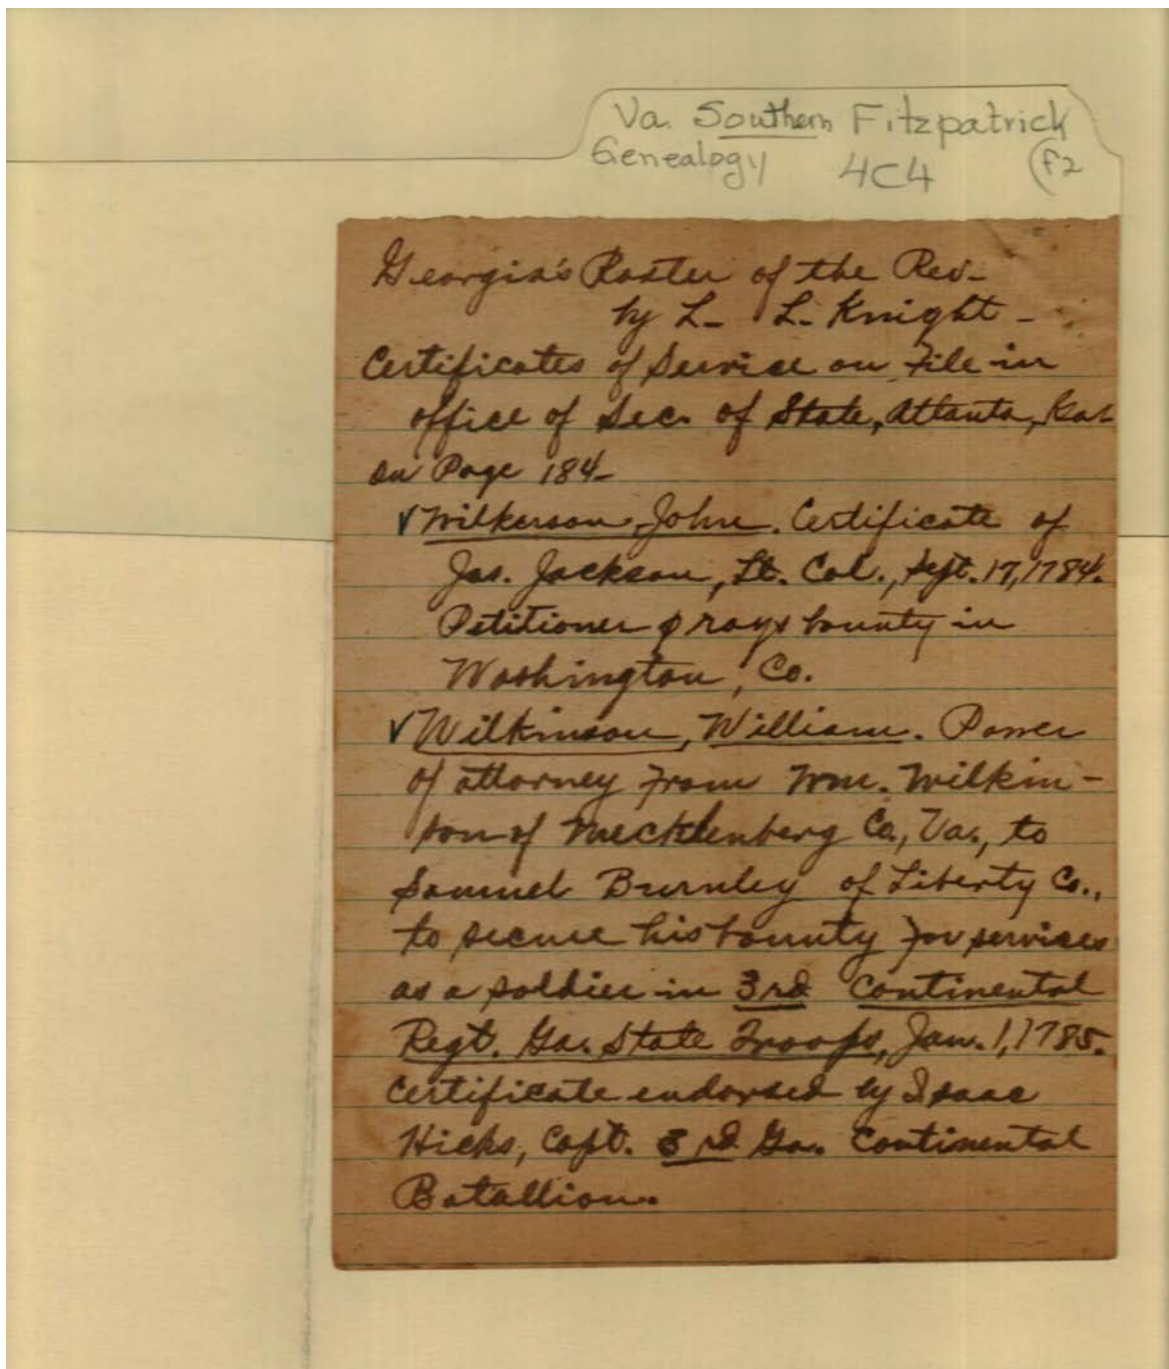 Va. Southern Fitzpatrick
Genealogy 4C4 (F2
Georgia's Roster of the Rev-
by L- L. Knight-
Certificates of Service on File in
office of Sec. of State, Atlanta, Ga.
on Page 184-
✓Wilkerson, John. Certificate of
Jas. Jackson, Lt. Col., Sept. 17, 1784.
Petitioner prays bounty in
Washington, Co.
✓Wilkinson, William. Power
of attorney from Wm. Wilkin-
son of Mecklenberg Co., Va., to
Samuel Burnley of Liberty Co.,
to secure his bounty for services
as a soldier in 3rd Continental
Regt. Ga. State Troops, Jan. 1, 1785.
Certificate endorsed by Isaac
Hicks, Capt. 3rd Ga. Continental
Batallion.